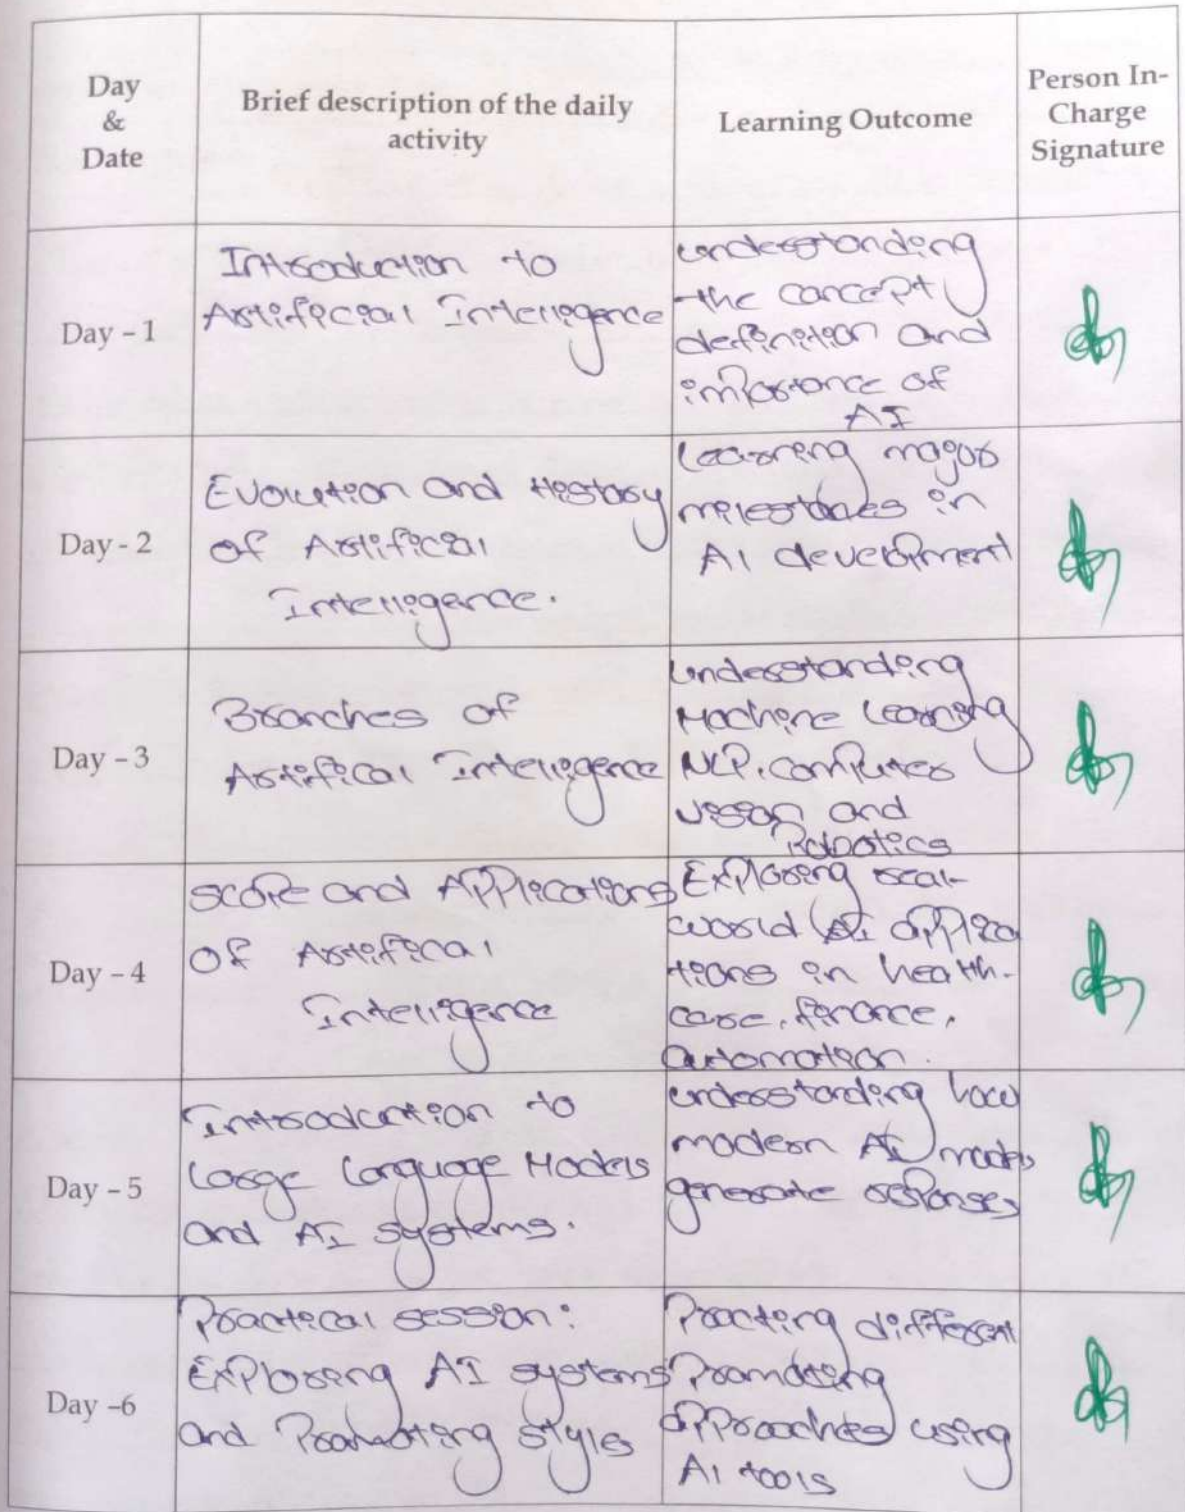 Day
&
Date
Brief description of the daily
activity
Learning Outcome
Person In-
Charge
Signature
Day – 1
Introduction to
Artificial Intelligence
understanding
the concept
definition and
importance of
AI
Day - 2
Evolution and History
of Artificial
Intelligence.
Learning major
milestones in
AI development
Day – 3
Branches of
Artifical Intelligence
understanding
Machine Learning
NLP, computer
vision and
Robotics
Day – 4
scope and Applications
of Artifical
Intelligence
Exploring real-
world AI applica
tions in health-
care, finance,
automation.
Day – 5
Introduction to
Large Language Models
and AI systems.
understanding how
modern AI models
generate responses
Day –6
Practical session:
Exploring AI systems
and Prompting styles
Practing different
Prompting
approaches using
AI tools